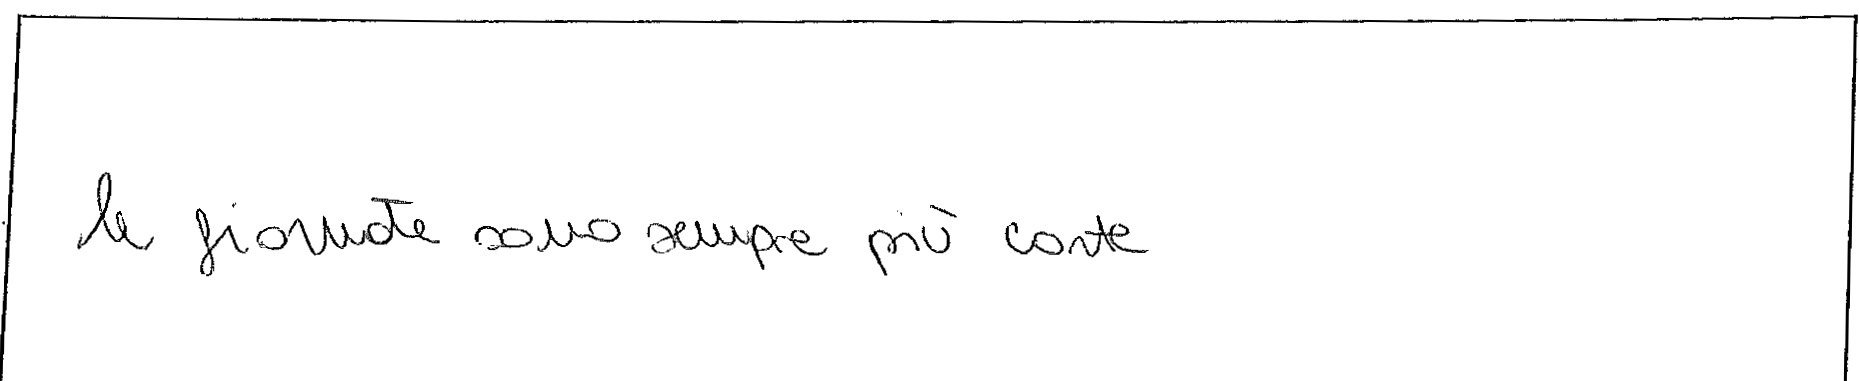 le giornate sono sempre più corte